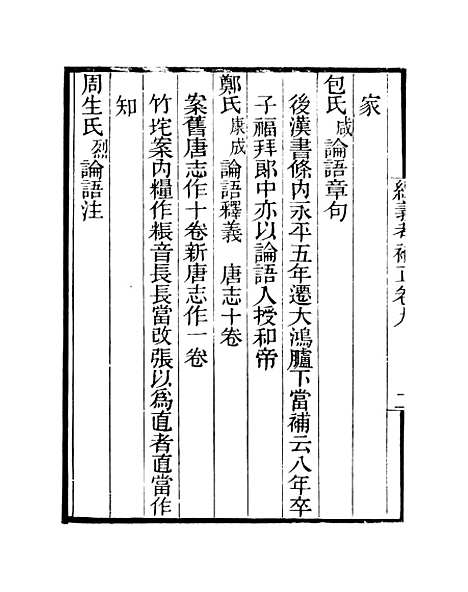 家
包氏咸論語章句
後漢書條内永平五年遷大鴻臚下當補云八年卒
子福拜郞中亦以論語入授和帝
鄭氏康成論語釋義　唐志十卷
案舊唐志作十卷新唐志作一卷
竹垞案内糧作粻音長長當改張以爲直者直當作
知
周生氏烈論語注
經義考補正卷九
二